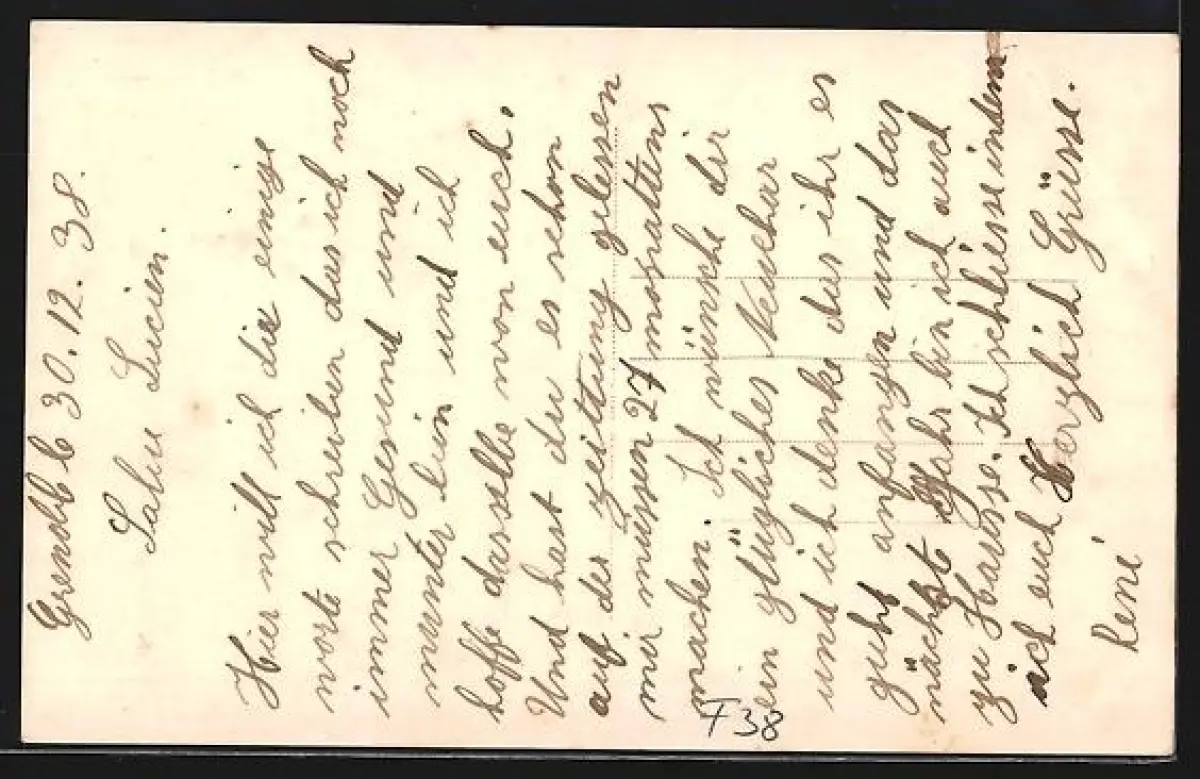 Grenobl 6 30.12.38.
Salu Lucien.
Hier will ich die einige
worte schreiben das ich noch
immer Gesund und
munter bin und ich
hoffe dasselbe von euch.
Und hast du es schon
auf der zeittung gelessen
mir müssen 27 monattens
machen. Ich wünsche dir
ein glügliches Neuchar
und ich denke das ihr es
guht anfangen und das
nächst Jahr bin ich auch
zu Hausse. Ich schliesse indem
ich euch Herzlich Grüsse.
René
F38